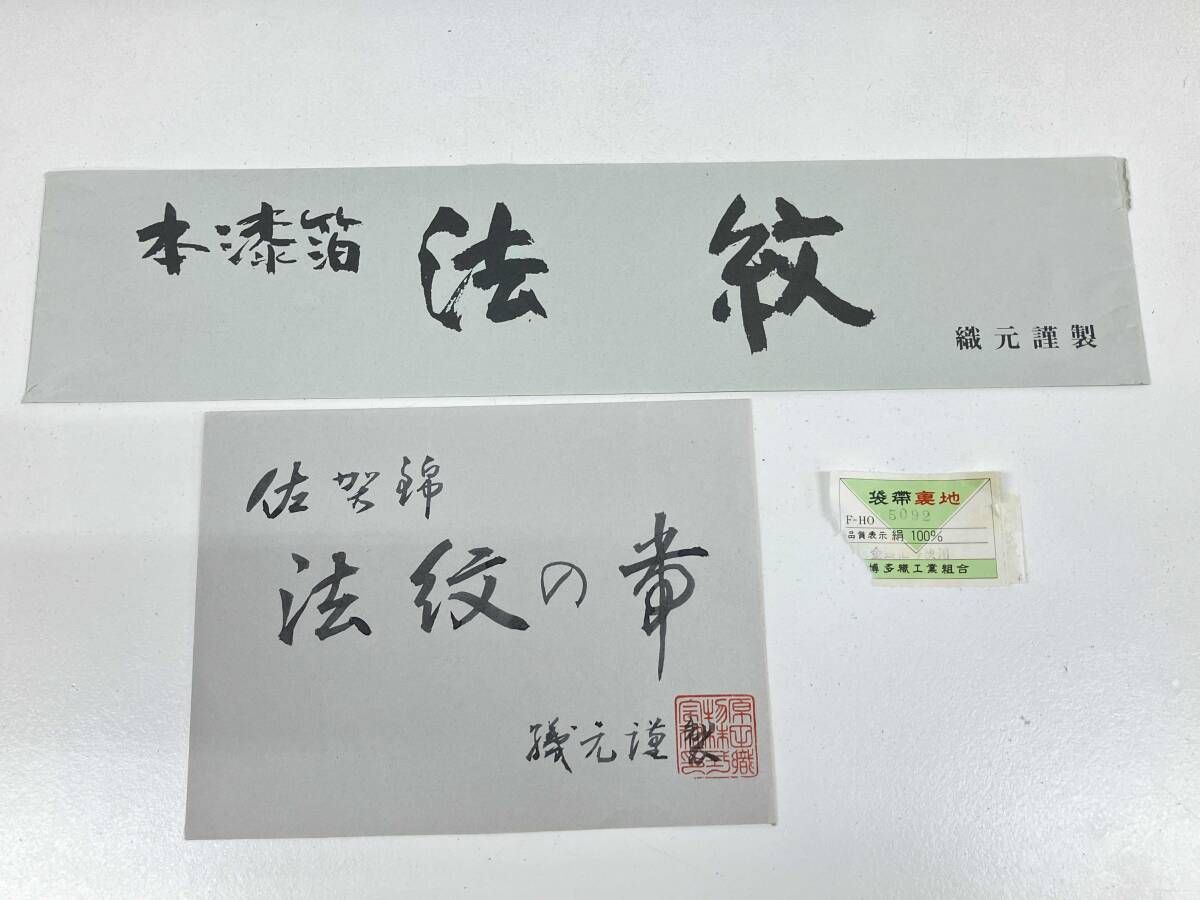 本漆箔 法紋
織元謹製
佐賀錦
法紋の帯
織元謹製
袋帯裏地
F-HO 5092
品質表示 絹 100%
博多織工業組合